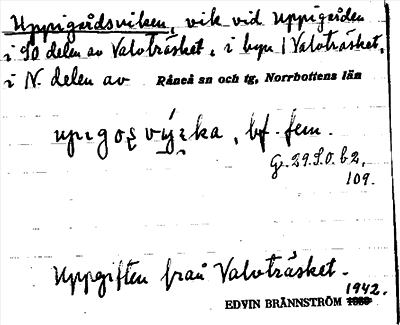 Uppigårdsviken, vik vid Uppigården
i SO delen av Valvträsket, i byn Valvträsket,
i N. delen av Råneå sn och tg, Norrbottens län
bf. fem.
G. 29. S. O. b. 2,
109.
Uppgiften från Valvträsket.
1942.
EDVIN BRÄNNSTRÖM